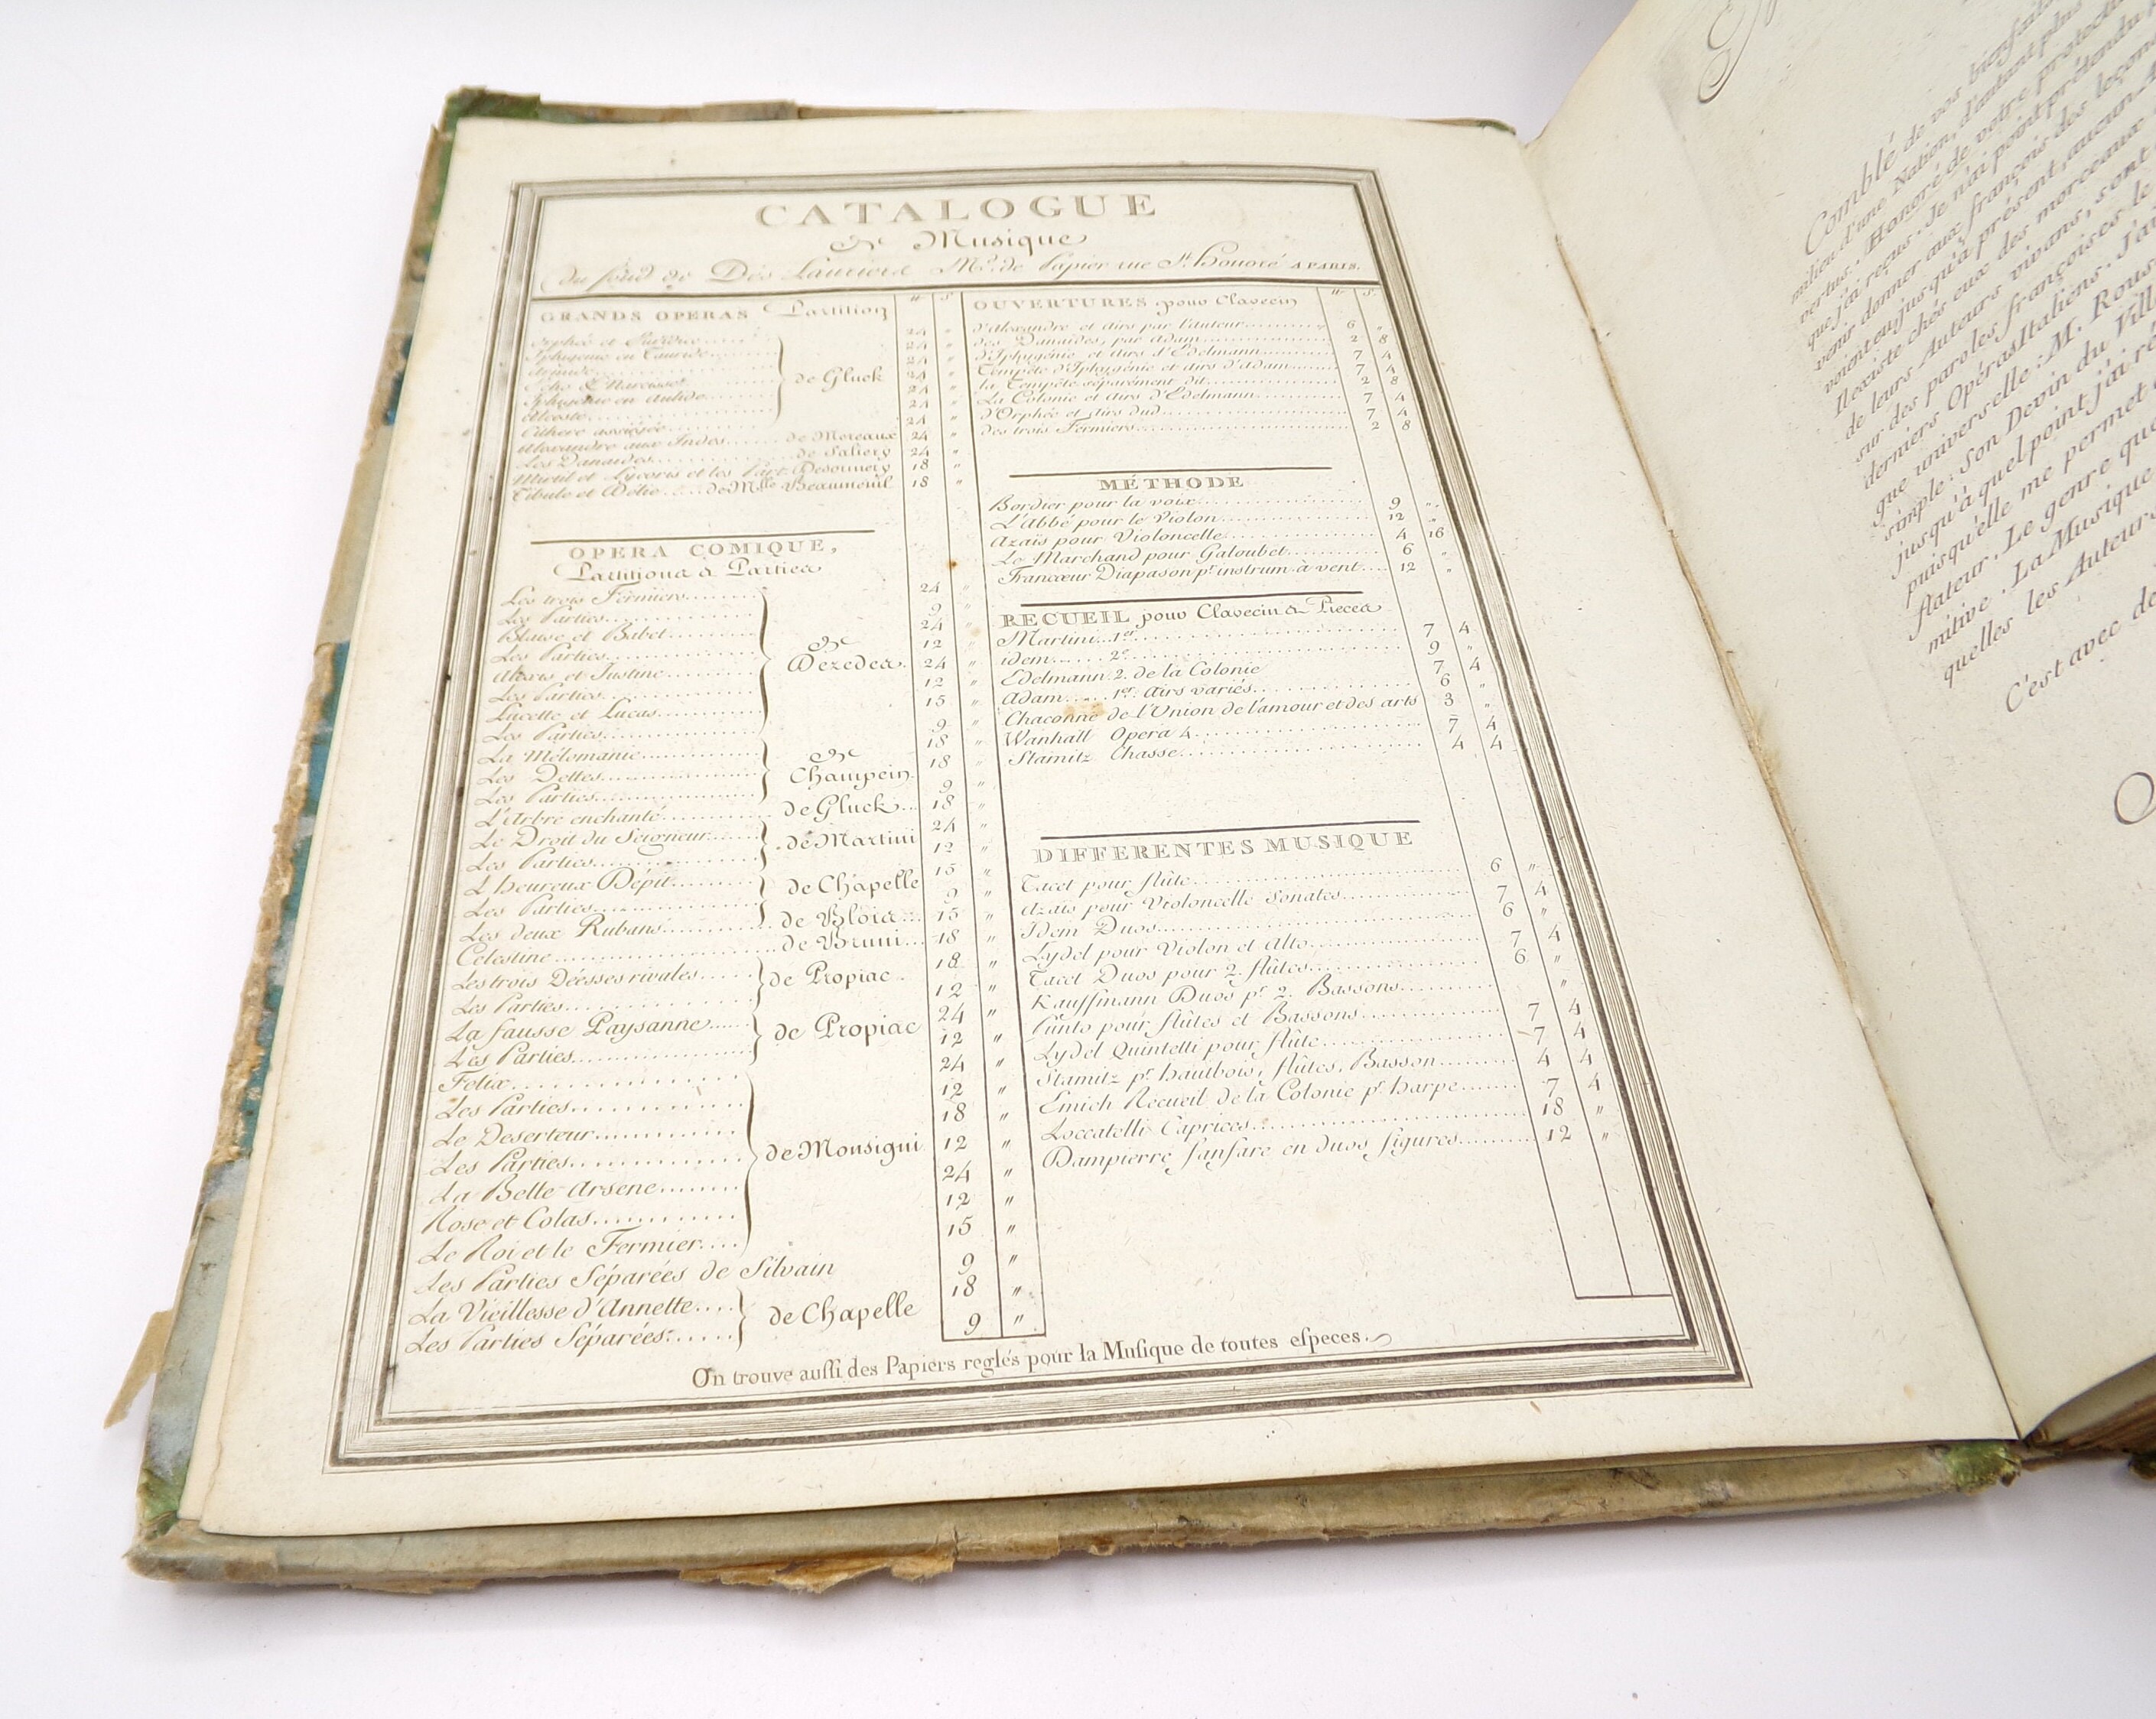 CATALOGUE
de Musique
du fond de Des Lauriers Md. de Papier rue St. Honoré A PARIS.
GRANDS OPERAS Partition
Orphée et Euridice......
Iphigenie en Tauride......
Armide......
Echo & Narcisse......
Iphigenie en Aulide......
Alceste......
de Gluck
Cithere assiégée......
Alexandre aux Indes...... de Mereaux 24 "
Les Danaides...... de Saliery 24 "
Mirtil et Lycoris et les Part. Desormery 18 "
Tibule et Délie.... de Mlle. Beaumenil 18 "
OPERA COMIQUE,
Partitions & Parties
Les trois Fermiers...... 24 "
Les Parties...... 9 "
Blaise et Babet...... 24 "
Les Parties...... 12 "
Alexis et Justine...... 24 "
Les Parties...... 12 "
Lucette et Lucas...... 15 "
Les Parties...... 9 "
de Dezedes.
La Mélomanie...... 18 "
Les Dettes...... 18 "
Les Parties...... 9 "
de Champein
L'Arbre enchanté...... de Gluck... 18 "
Le Droit du Seigneur...... 24 "
Les Parties...... 12 "
de Martini
L'heureux Dépit...... 15 "
Les Parties...... 9 "
de Chapelle
Les deux Rubans...... de Blois... 15 "
Célestine...... de Bruni... 18 "
Les trois Déesses rivales...... 18 "
Les Parties...... 12 "
de Propiac.
La fausse Paysanne...... 24 "
Les Parties...... 12 "
de Propiac
Felix...... 24 "
Les Parties...... 12 "
Le Deserteur...... 18 "
Les Parties...... 12 "
La Belle Arsene...... 24 "
Rose et Colas...... 12 "
Le Roi et le Fermier.... 15 "
de Monsigni
Les Parties Séparées de Silvain 9 "
La Vieillesse d'Annette.... 18 "
Les Parties Séparées...... 9 "
de Chapelle
OUVERTURES pour Clavecin
d'Alexandre et Airs par l'auteur...... 6 "
des Danaides, par Adam...... 2 8
d'Iphygénie et Airs d'Edelmann...... 7 4
Tempête d'Iphygénie et airs d'adam...... 7 4
la Tempête séparément dit...... 2 8
La Colonie et Airs d'Edelmann...... 7 4
d'Orphée et Airs dud...... 7 4
des trois Fermiers...... 2 8
MÉTHODE
Bordier pour la voix...... 9 "
L'Abbé pour le Violon...... 12 "
Azaïs pour Violoncelle...... 4 16
Le Marchand pour Galoubet...... 6 "
Francœur Diapason pr. instrum. à vent.... 12 "
RECUEIL pour Clavecin & Pieces
Martini...1er....... 7 4
idem...... 2e....... 9 "
Edelmann 2. de la Colonie 7 4
Adam..... 1er. Airs variés...... 6 "
Chaconne de l'Union de l'amour et des arts 3 "
Wanhall Opera 4...... 7 4
Stamitz Chasse...... 4 4
DIFFERENTES MUSIQUE
Tacet pour flûte...... 6 "
Azaïs pour Violoncelle Sonates...... 7 4
Idem Duos...... 6 "
Lydel pour Violon et Alto...... 7 4
Tacet Duos pour 2. flûtes...... 6 "
Kauffmann Duos pr. 2. Bassons...... "
Punto pour flûtes et Bassons...... 7 4
Lydel Quintetti pour flûte...... 7 4
Stamitz pr. hautbois, flûtes, Basson...... 4 4
Emich Recueil de la Colonie pr. harpe...... 7 4
Loccatelli Caprices...... 18 "
Dampierre fanfare en duos figures...... 12 "
On trouve aussi des Papiers reglés pour la Musique de toutes especes.
Comblé de vos bienfaits
milieu d'une Nation, d'autant plus
vertus. Honoré de votre protection
que j'ai reçus. Je n'ai point prétendu
venir donner aux françois des leçons
voient eu jusqu'à présent, aucun
Il existe chés eux des morceaux
de leurs Auteurs vivans, sont
sur des paroles françoises le
derniers Opéras Italiens. J'ai
que universelle: M. Rous
simple: Son Devin du Vill
jusqu'à quel point j'ai ré
puisqu'elle me permet
flateur. Le genre que
mitive. La Musique
quelles les Auteurs
C'est avec de